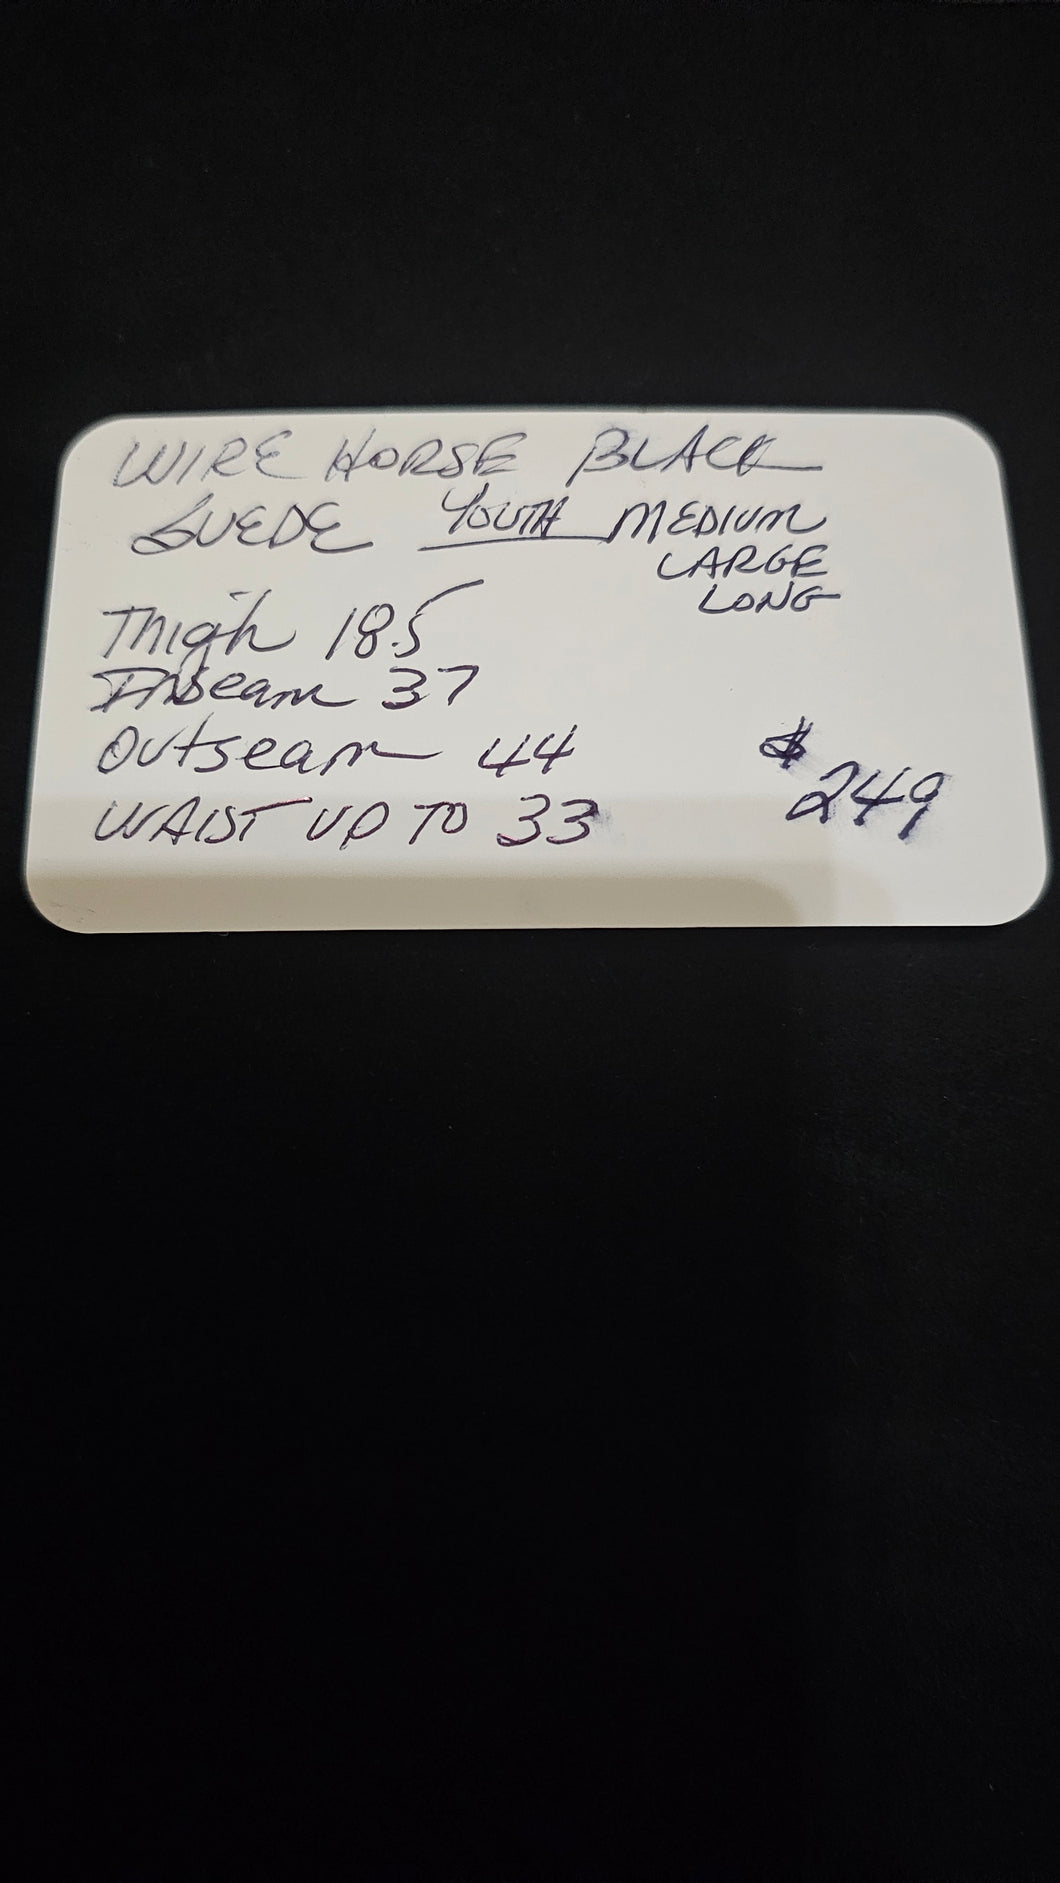 WIRE HORSE BLACK
SUEDE YOUTH MEDIUM
LARGE
LONG
Thigh 18.5
Inseam 37
Outseam 44
WAIST UP TO 33
$249